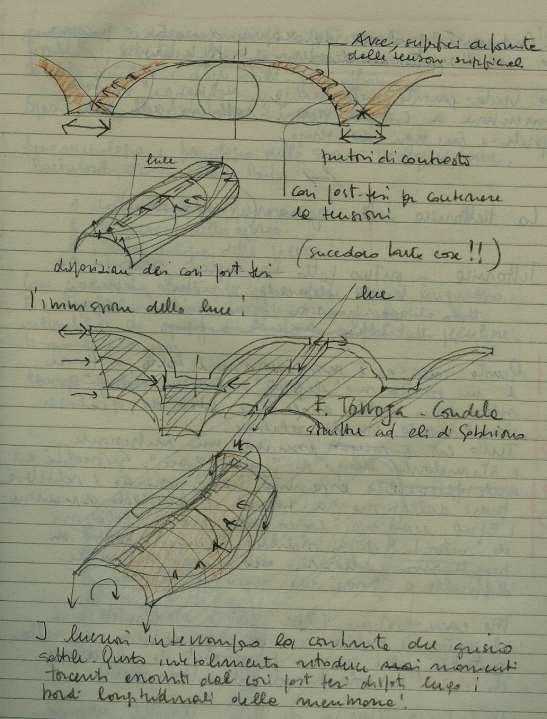 Aree, superfici deformate
delle tensioni superficiali
puntoni di contrasto
luce
cavi post-tesi per contenere
le tensioni
(succedono tante cose!!)
disposizione dei cavi post tesi
l'immissione della luce!
luce
E. Torroja - Candela
strutture ad ali di gabbiano
I lucernari interrompono la continuità del guscio
sottile. Questo indebolimento introduce momenti
torcenti assorbiti dai cavi post tesi disposti lungo i
bordi longitudinali della membrana!